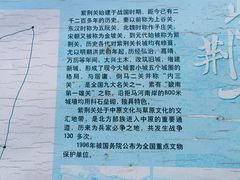 紫荆关始建于战国时期，距今已有二
千二百多年的历史。秦以前称为上谷关、
东汉时称为五阮关、北魏时称作子庄关、
宋朝又被称为金坡关，到元代始被称为紫荆
关。历史各代对紫荆关长城均有修葺，
尤以明朝洪武初年起，历经弘治、嘉靖、
万历等年间，大兴土木、改筑旧城，增建
新城，形成了现今大城套小城五个城圈的
格局，与居庸、倒马二关并称“内三
关”，是全国九大名关之一，素有“畿南
第一雄关”之称，沿拒马河南岸的800米
城墙均用料石垒砌，独具特色。
紫荆关处于中原文化与草原文化的交
汇地带，是北方部族进入中原的重要通
道，历来为兵家必争之地，共发生战争
130 多次。
1996年被国务院公布为全国重点文物
保护单位。
荆